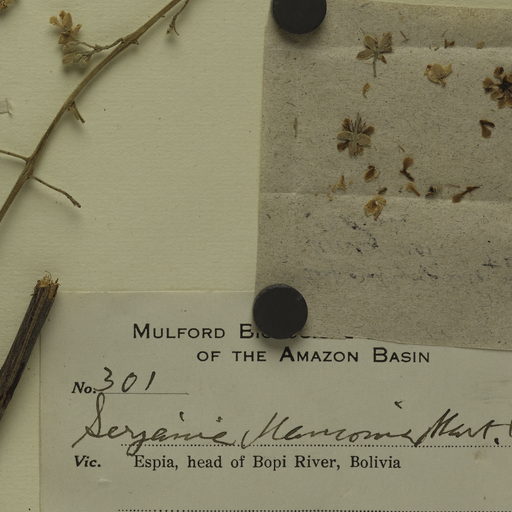 MULFORD
OF THE AMAZON BASIN
No. 301
Serjania Mart.
Vic. Espia, head of Bopi River, Bolivia